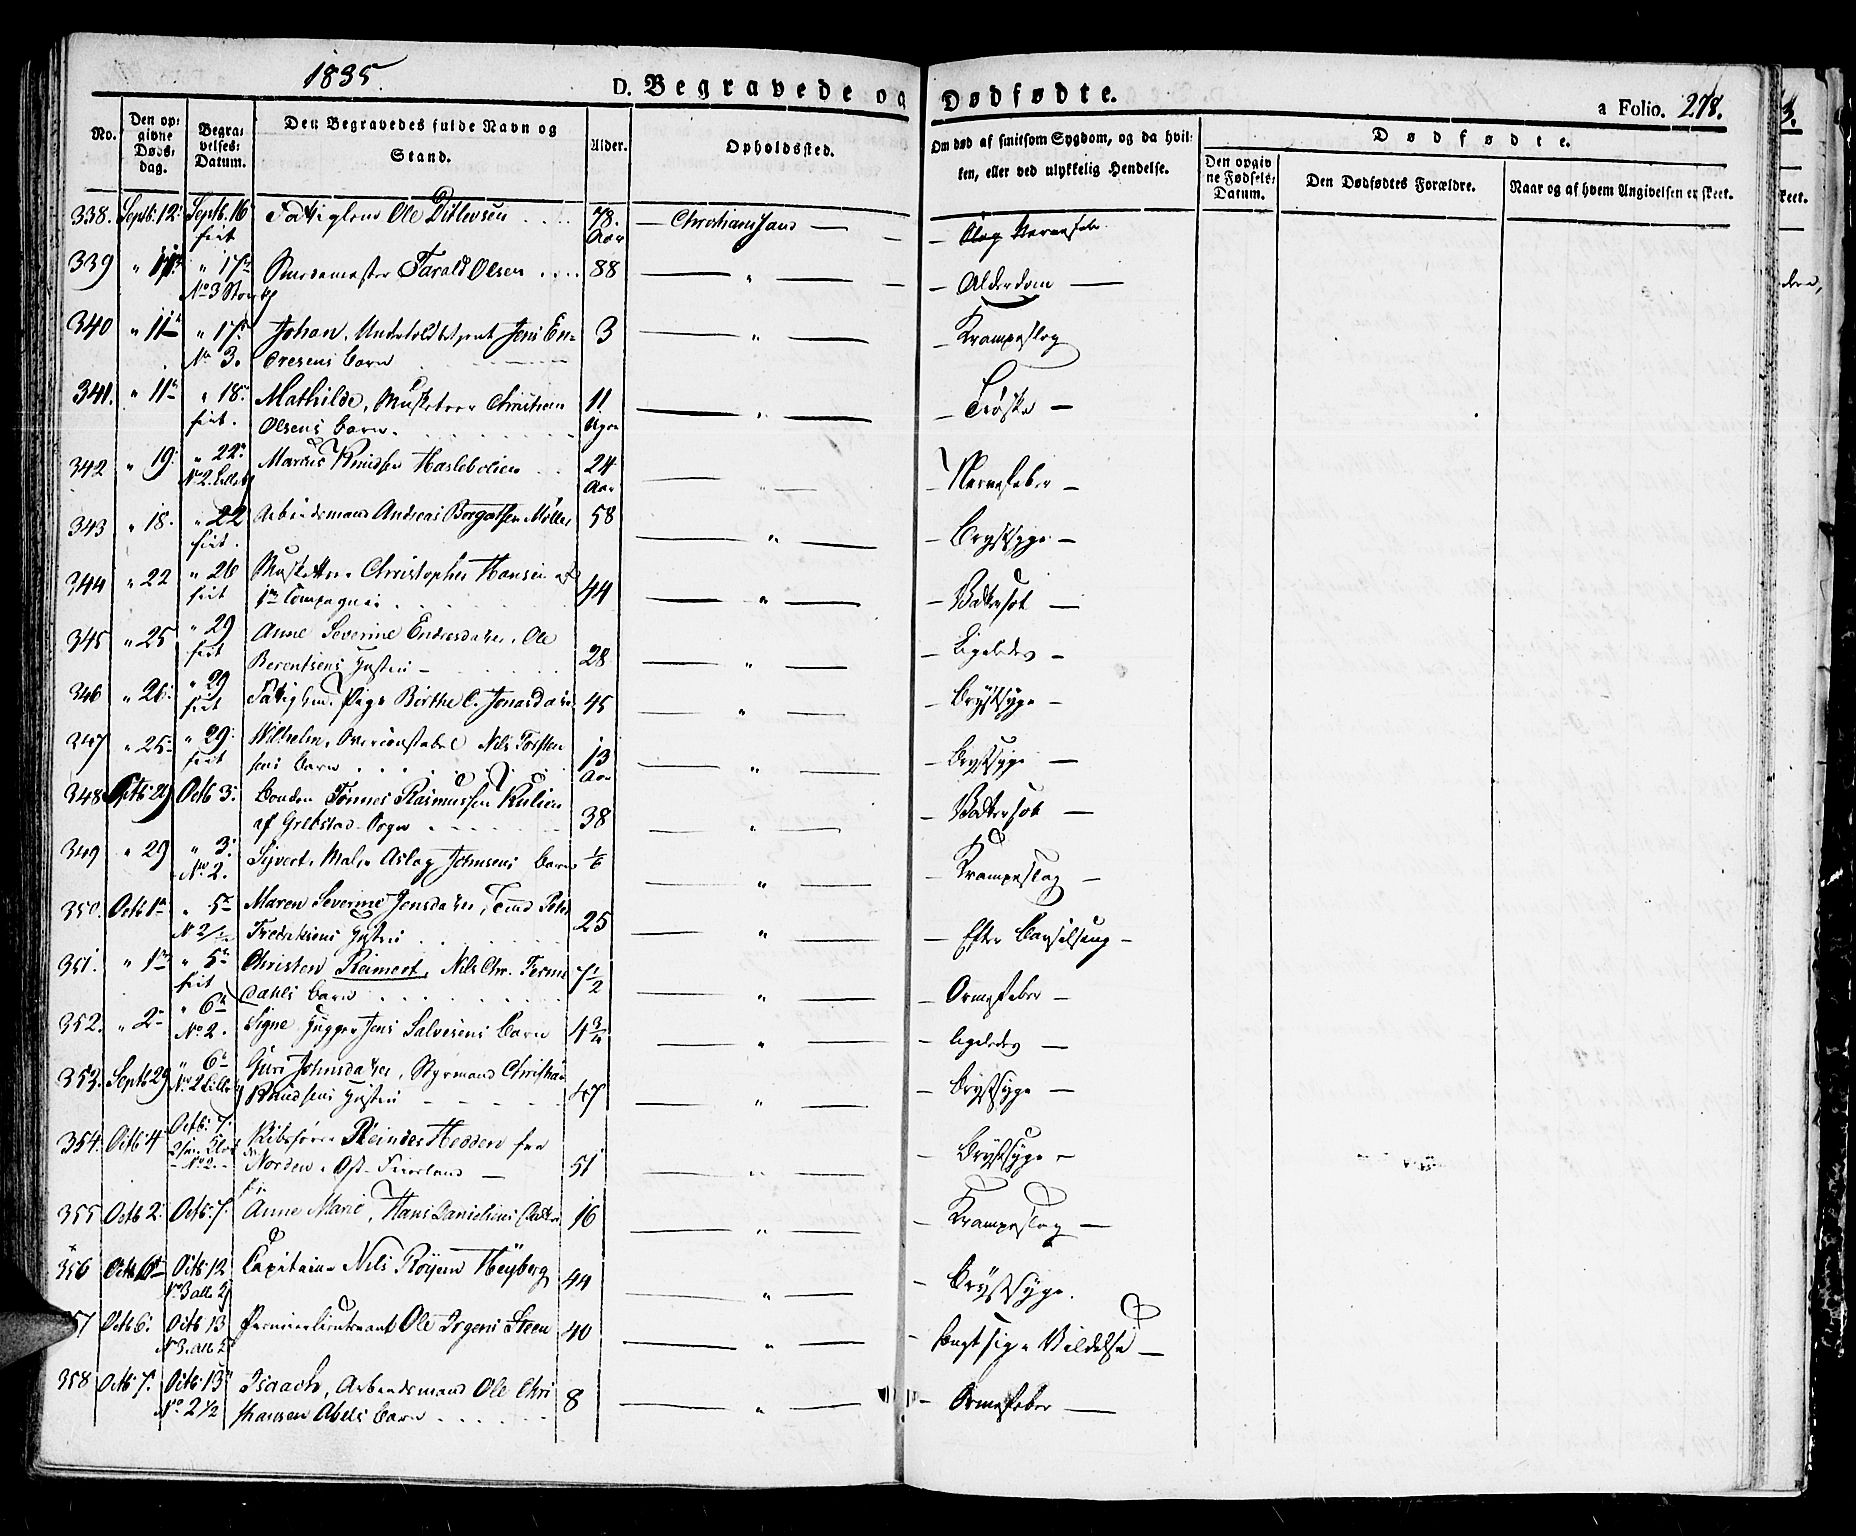 1835.
D. Begravede og Dødfødte.
a Folio. 278.
No.
Den opgivne Døds-dag.
Begravelses-Datum.
Den Begravedes fulde Navn og Stand.
Alder.
Opholdssted.
Om død af smitsom Sygdom, og da hvilken, eller ved ulykkelig Hendelse.
Dødfødte.
Den opgivne Fødsels-Datum.
Den Dødfødtes Forældre.
Naar og af hvem Angivelsen er skeet.
338. Septb: 12. Septb. 16 Fattiglem Ole Ditlevsen 78. — Christianssand —
friit Aar
339 " 11 " 17 Tarald Olsen 88 — " — — Alderdom —
No 3
340 " 11 " 17 Johan, Jens En- 3 — " — Krampeslag
No 3. dresens barn
341. " 11 " 18 Mathilde, Musketeer Christian 11 — " — — Trøske —
friit. Olsens barn.
342 " 19. " 22 Marcus Knudsen 24 — Nervefeber —
No 2. Aar
343 " 18. " 22 Arbeidsmand Andreas Møller 58 " — Brystsyge —
friit.
344 " 22 " 26 Musketeer Christopher Hansen af 44 — " — — Vattersot —
friit 1ste Compagnie
345 " 25 " 29 Anne Severine Endresdatter, Ole 28 — " — — Ligeledes —
friit Berentsens Hustru
346 " 26. " 29 Birthe C. Jonasdatter 45 — " — — Brystsyge —
friit
347 " 25 " 29. Wilhelm, Overconstabel Nils Torsten 13 — " — — Brystsyge —
friit sens barn Aar
348 Septb 29 Octb 3. Bonden Tønnes Rasmussen 38 — " — — Vattersot —
af Grebstad Sogn
349 " 29 " 3. Sivert, Aslag Johnsens barn 1/6 — " — — Krampeslag —
No 2.
350. Octb 1 " 5 Maren Severine Jensdatter, 25 — " — — Efter Barselseng —
No 2 1/2 Fredriksens Hustru
351. " 1 " 5 Christen Reimert, Nils Chr. 7 1/2 — " — — Ormefeber —
friit dahls barn
352. " 2 " 6 Signe, Jens Salvesens barn 4 3/4 — " — — ligeledes —
No 2.
353. Septb 29 " 6 Guri Johnsdatter, Styrmand Christian 47 — " — — Brystsyge —
No 2 Knudsens Hustru
354. Octb 4 Octb: 7. Skibsfører Reinder Hedden fra 51 — " — — Brystsyge —
No 2. Norden i Ost-Friesland —
355 Octb 2. Octb. 7. Anne Marie, Hans Danielsens Datter 16 — " — — Krampeslag —
356 Octb 6 Octb 12 Capitaine Nils Heyberg 44 — " — — Brystsyge.
No 3
357 Octb 6. Octb 13 Premierlieutenant Ole Irgens Steen 40 — " —
No 3
358 Octb 7. Octb 13 Isaach, Arbeidsmand Ole Chri 8 — " — — Ormefeber —
No 2 1/2 stiansen Abels barn